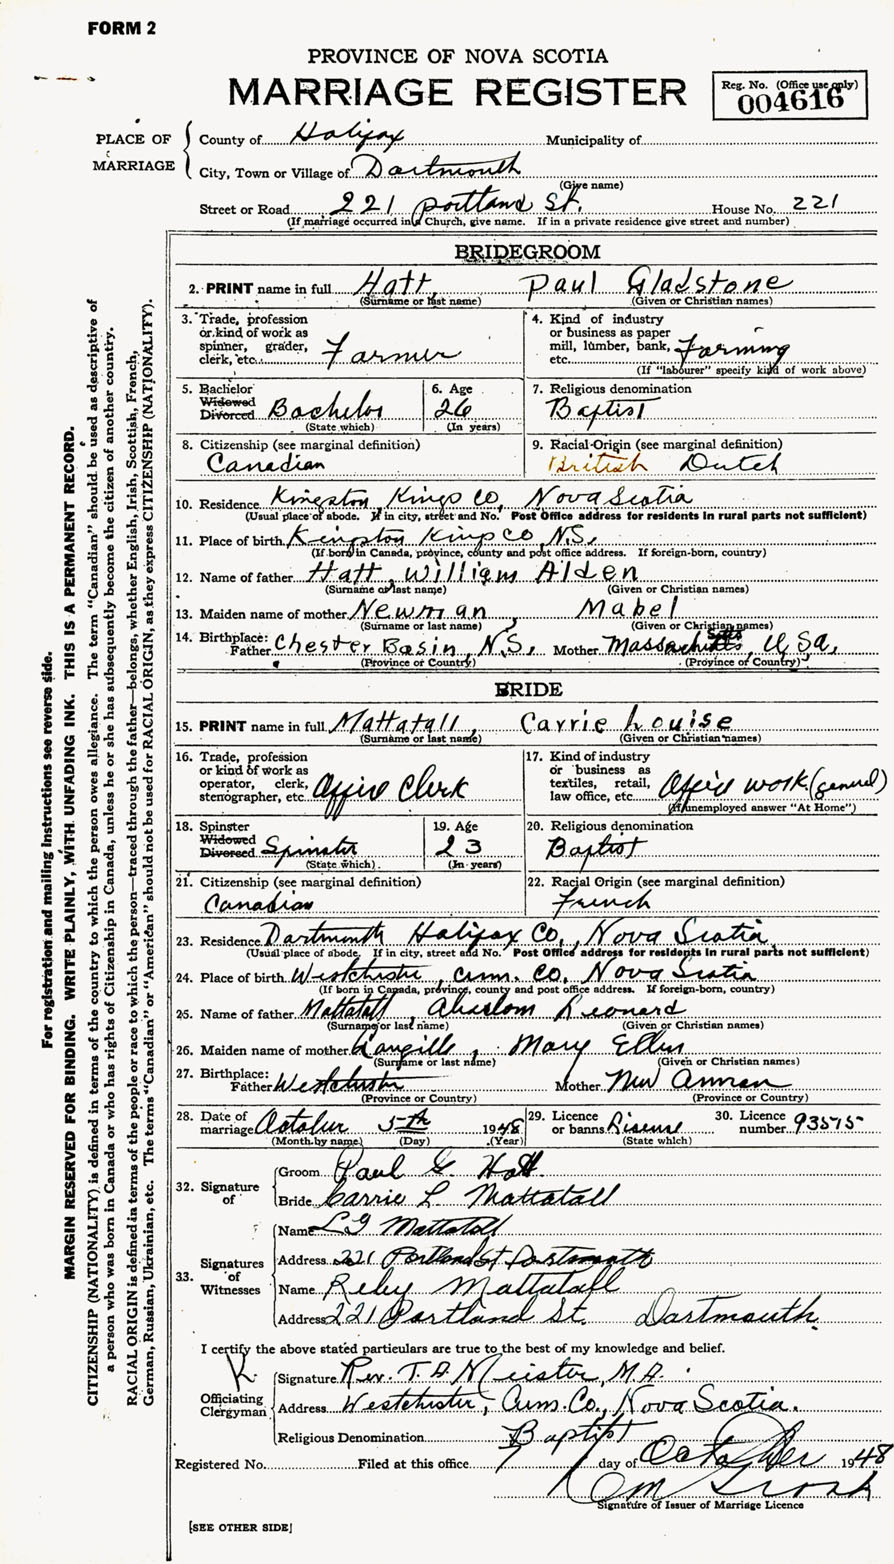 FORM 2
PROVINCE OF NOVA SCOTIA
MARRIAGE REGISTER
Reg. No. (Office use only)
004616
PLACE OF MARRIAGE
County of Halifax Municipality of
City, Town or Village of Dartmouth
(Give name)
Street or Road 221 Portland St. House No. 221
(If marriage occurred in a Church, give name. If in a private residence give street and number)
BRIDEGROOM
2. PRINT name in full Hatt, Paul Gladstone
(Surname or last name) (Given or Christian names)
3. Trade, profession or kind of work as spinner, grader, clerk, etc. Farmer
4. Kind of industry or business as paper mill, lumber, bank, etc. Farming
(If "labourer" specify kind of work above)
5. Bachelor Widowed Divorced Bachelor
(State which)
6. Age 26
(In years)
7. Religious denomination
Baptist
8. Citizenship (see marginal definition)
Canadian
9. Racial Origin (see marginal definition)
British Dutch
10. Residence Kingston Kings Co, Nova Scotia
(Usual place of abode. If in city, street and No. Post Office address for residents in rural parts not sufficient)
11. Place of birth Kingston Kings Co, N.S.
(If born in Canada, province, county and post office address. If foreign-born, country)
12. Name of father Hatt, William Alden
(Surname or last name) (Given or Christian names)
13. Maiden name of mother Newman, Mabel
(Surname or last name) (Given or Christian names)
14. Birthplace: Father Chester Basin, N.S. Mother Massachusetts, U.S.A.
(Province or Country) (Province or Country)
BRIDE
15. PRINT name in full Mattatall, Carrie Louise
(Surname or last name) (Given or Christian names)
16. Trade, profession or kind of work as operator, clerk, stenographer, etc. Office Clerk
17. Kind of industry or business as textiles, retail, law office, etc. Office work (general)
(If unemployed answer "At Home")
18. Spinster Widowed Divorced Spinster
(State which)
19. Age 23
(In years)
20. Religious denomination
Baptist
21. Citizenship (see marginal definition)
Canadian
22. Racial Origin (see marginal definition)
French
23. Residence Dartmouth Halifax Co., Nova Scotia
(Usual place of abode. If in city, street and No. Post Office address for residents in rural parts not sufficient)
24. Place of birth Westchester, Cum. Co, Nova Scotia
(If born in Canada, province, county and post office address. If foreign-born, country)
25. Name of father Mattatall, Leonard
(Surname or last name) (Given or Christian names)
26. Maiden name of mother Langille, Mary Ellen
(Surname or last name) (Given or Christian names)
27. Birthplace: Father Westchester Mother New Annan
(Province or Country) (Province or Country)
28. Date of marriage October 5th 1948
(Month by name) (Day) (Year)
29. Licence or banns Lisense
(State which)
30. Licence number 93575
32. Signature of
Groom Paul G. Hatt
Bride Carrie L. Mattatall
33. Signatures of Witnesses
Name L G Mattatall
Address 221 Portland St Dartmouth
Name Reby Mattatall
Address 221 Portland St. Dartmouth
I certify the above stated particulars are true to the best of my knowledge and belief.
Officiating Clergyman
Signature Rev. T. A. Meister, M.A.
Address Westchester, Cum. Co., Nova Scotia.
Religious Denomination Baptist
Registered No. Filed at this office 7 day of October 1948
Signature of Issuer of Marriage Licence
[SEE OTHER SIDE]
For registration and mailing instructions see reverse side.
MARGIN RESERVED FOR BINDING. WRITE PLAINLY, WITH UNFADING INK. THIS IS A PERMANENT RECORD.
CITIZENSHIP (NATIONALITY) is defined in terms of the country to which the person owes allegiance. The term "Canadian" should be used as descriptive of
a person who was born in Canada or who has rights of Citizenship in Canada, unless he or she has subsequently become the citizen of another country.
RACIAL ORIGIN is defined in terms of the people or race to which the person—traced through the father—belongs, whether English, Irish, Scottish, French,
German, Russian, Ukrainian, etc. The terms "Canadian" or "American" should not be used for RACIAL ORIGIN, as they express CITIZENSHIP (NATIONALITY).